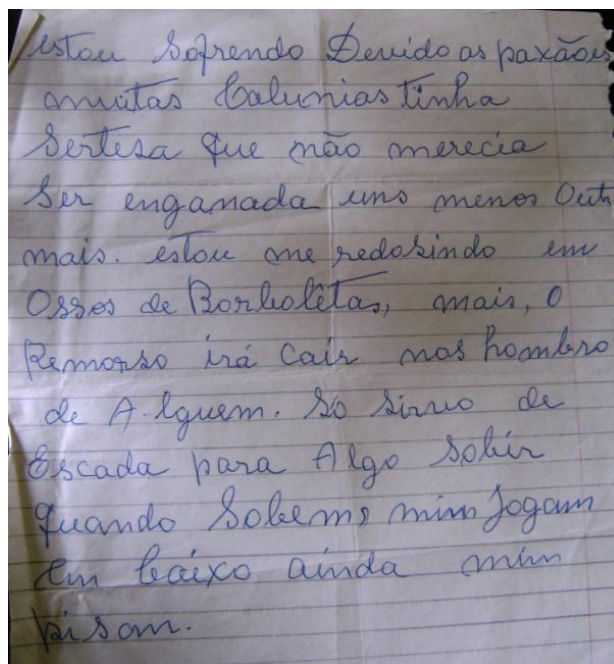 estou Sofrendo Devido as paxões
muitas Calunias tinha
Sertesa que não merecia
Ser enganada uns menos Outr
mais. estou me redosindo em
Ossos de Borbolêtas, mais, O
Remorso irá Cair nos hombro
de A-lguem. So sirvo de
Escada para Algo Sobir
quando Sobem, mim Jogam
em baixo ainda mim
pisam.